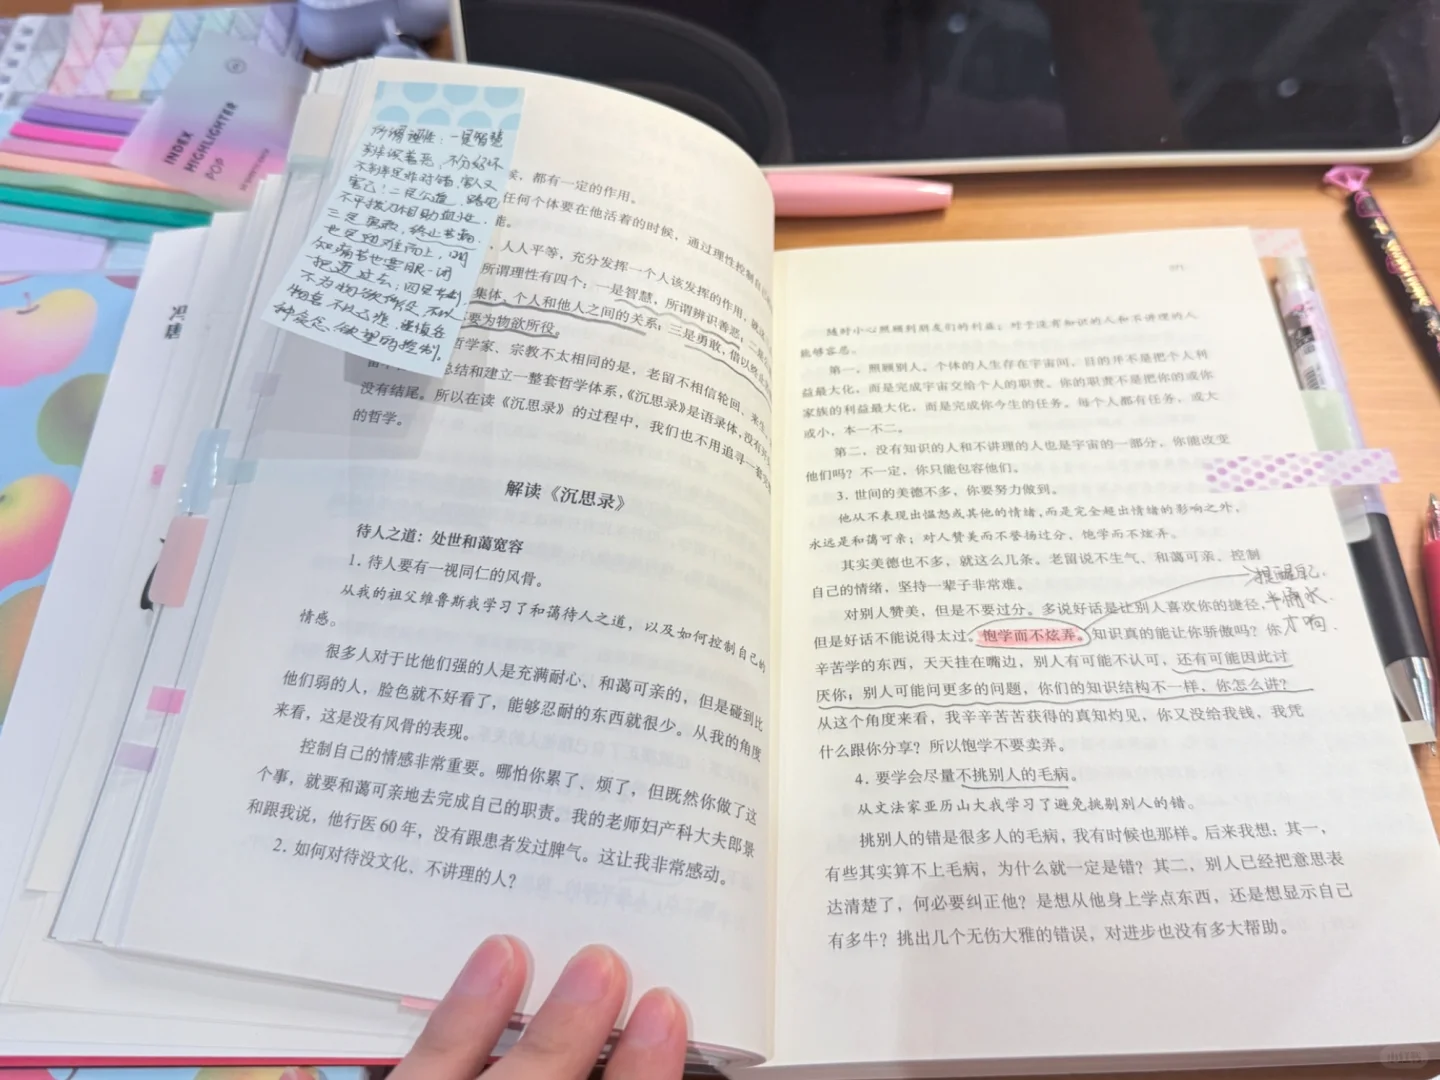 INDEX
HIGHLIGHTER
POP
冯唐
所谓理性：一是智慧
辨识善恶，不分好坏
不平拔刀相助血性
三是勇敢，终止苦难
也是迎难而上，明
知痛苦也要眼一闭
种贪念、欲望的控制。
候，都有一定的作用。
任何个体要在他活着的时候，通过理性控制自
能。
，人人平等，充分发挥一个人该发挥的作用，就
所谓理性有四个：一是智慧，所谓辨识善恶；二是
集体、个人和他人之间的关系；三是勇敢，借以终止
要为物欲所役。
哲学家、宗教不太相同的是，老留不相信轮回、来生，
总结和建立一整套哲学体系，《沉思录》是语录体，没有
没有结尾。所以在读《沉思录》的过程中，我们也不用追寻一套完
的哲学。
解读《沉思录》
待人之道：处世和蔼宽容
1. 待人要有一视同仁的风骨。
从我的祖父维鲁斯我学习了和蔼待人之道，以及如何控制自己的
情感。
很多人对于比他们强的人是充满耐心、和蔼可亲的，但是碰到比
他们弱的人，脸色就不好看了，能够忍耐的东西就很少。从我的角度
来看，这是没有风骨的表现。
控制自己的情感非常重要。哪怕你累了、烦了，但既然你做了这
个事，就要和蔼可亲地去完成自己的职责。我的老师妇产科大夫郎景
和跟我说，他行医 60 年，没有跟患者发过脾气。这让我非常感动。
2. 如何对待没文化、不讲理的人？
随时小心照顾到朋友们的利益；对于没有知识的人和不讲理的人
能够容忍。
第一，照顾别人，个体的人生存在宇宙间，目的并不是把个人利
益最大化，而是完成宇宙交给个人的职责。你的职责不是把你的或你
家族的利益最大化，而是完成你今生的任务。每个人都有任务，或大
或小，本一不二。
第二，没有知识的人和不讲理的人也是宇宙的一部分，你能改变
他们吗？不一定，你只能包容他们。
3. 世间的美德不多，你要努力做到。
他从不表现出愠怒或其他的情绪，而是完全超出情绪的影响之外，
永远是和蔼可亲；对人赞美而不誉扬过分，饱学而不炫弄。
其实美德也不多，就这么几条。老留说不生气、和蔼可亲、控制
自己的情绪，坚持一辈子非常难。
对别人赞美，但是不要过分。多说好话是让别人喜欢你的捷径，
但是好话不能说得太过。饱学而不炫弄。知识真的能让你骄傲吗？你
辛苦学的东西，天天挂在嘴边，别人有可能不认可，还有可能因此讨
厌你；别人可能问更多的问题，你们的知识结构不一样，你怎么讲？
从这个角度来看，我辛辛苦苦获得的真知灼见，你又没给我钱，我凭
什么跟你分享？所以饱学不要卖弄。
提醒自己，
半桶水
才响
4. 要学会尽量不挑别人的毛病。
从文法家亚历山大我学习了避免挑剔别人的错。
挑别人的错是很多人的毛病，我有时候也那样。后来我想：其一，
有些其实算不上毛病，为什么就一定是错？其二，别人已经把意思表
达清楚了，何必要纠正他？是想从他身上学点东西，还是想显示自己
有多牛？挑出几个无伤大雅的错误，对进步也没有多大帮助。
小红书